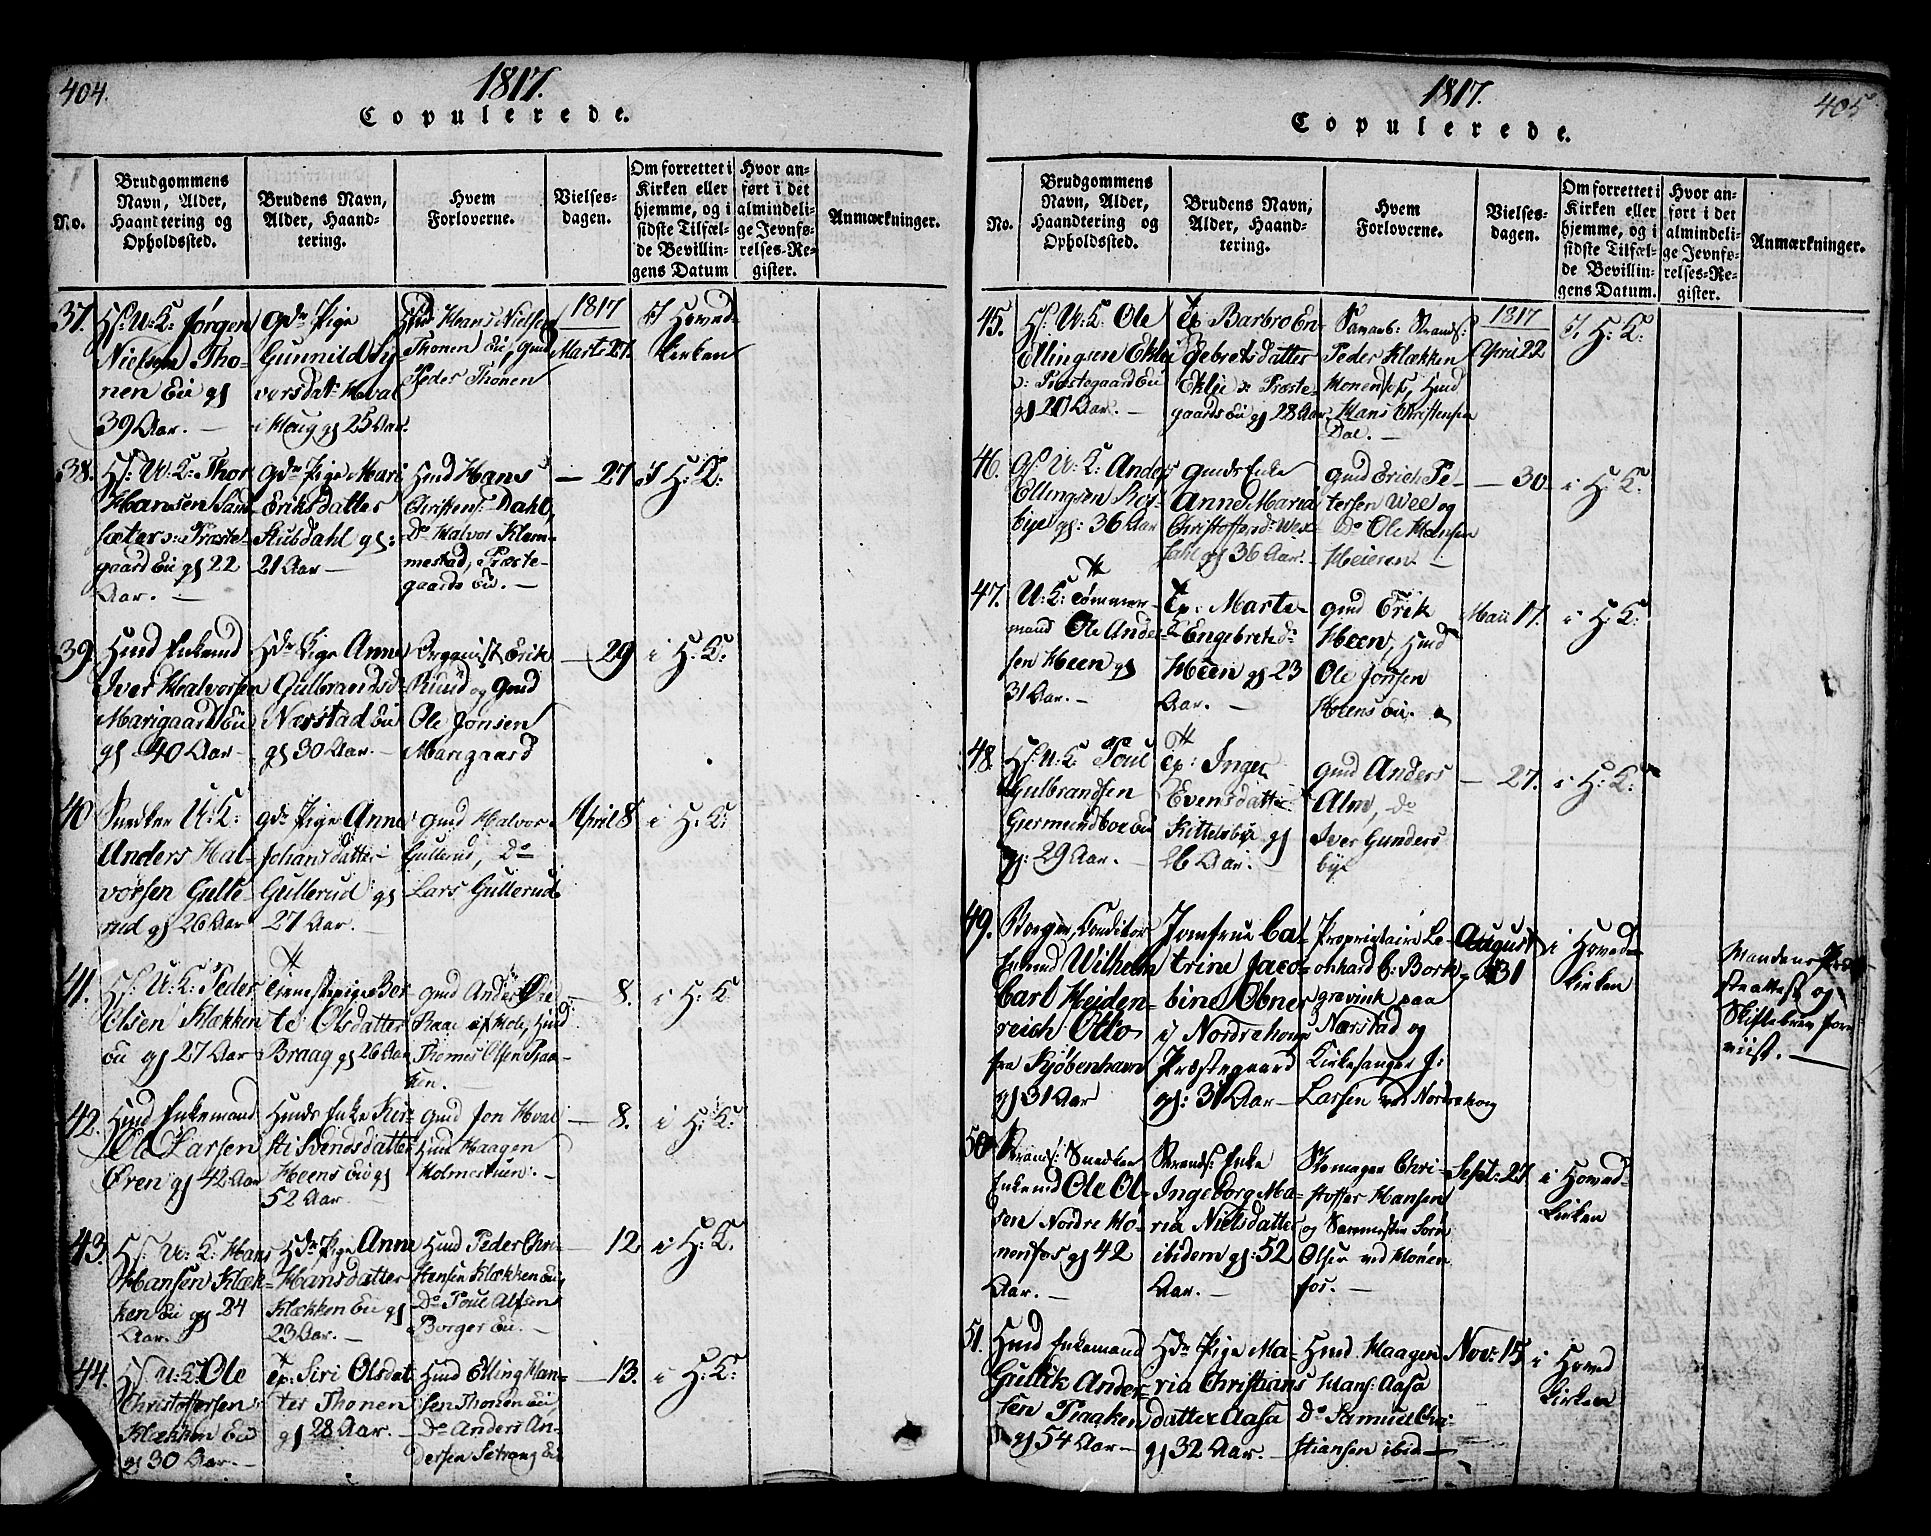 404.
1817.
Copulerede.
No.
Brudgommens
Navn, Alder,
Haandtering og
Opholdssted.
Brudens Navn,
Alder, Haand-
tering.
Hvem
Forloverne.
Vielses-
dagen.
Om forrettet i
Kirken eller
hjemme, og i
sidste Tilfæl-
de Bevillin-
gens Datum
Hvor an-
ført i det
almindeli-
ge Jevnfø-
relses-Re-
gister.
Anmærkninger.
37.
Hs: U: K: Jørgen
Nielsen Tho-
nen Eie gl
39 Aar. —
Gdr Pige
Gunnild Sy-
versdatt: Hval
i Houg gl 25 Aar.
Hmd Hans Nielsen
Thonen Eie, Gmd
Peder Thonen
1817
Marts 27.
i Hoved-
kirken
38.
Hs: U: K: Thor
Hansen
sæter Præste-
gaard Eie gl 22
Aar. —
Gdr Pige Mari
Eriksdatter
Stubdahl gl:
21 Aar —
Hmd Hans
Christens: Dahl,
Do Halvor Klem-
mestad, Præste-
gaards Eie. —
— 27
i H: K:
39
Hmd Enkemd
Iver Halvorsen
Marigaard Eie
gl 40 Aar —
Hdr Pige Anne
Gulbrandsd:
Nærstad Eie
gl 30 Aar. —
Organist Erik
Ruud og Gmd
Ole Jonsen
Marigaard
— 29
i H: K:
40
Snedker U: K:
Anders Hal-
vorsen Gulle-
rud gl 26 Aar
Gdr Pige Anne
Johansdatter
Gullerud gl
27 Aar. —
Gmd Halvor
Gullerud, Do
Lars Gullerud
April 8
i H: K:
41.
Hs: U: K: Peder
Olsen Klækken
Eie gl 27 Aar
Tjenestepige Ber-
te Olsdatter
Braag gl 26 Aar
Gmd Anders
af Hole, Hmd
Thomas Olsen Braa-
ken. —
— 8.
i H: K:
42.
Hmd Enkemand
Ole Larsen
Øren gl 42 Aar
Hmds Enke Kir-
sti Svendsdatter
Heens Eie gl
52 Aar.
Gmd Jon Hval
Hmd Haagen
— 8.
i H: K:
43.
Hs: U: K: Hans
Hansen Klæk-
ken Eie gl 24
Aar.
Hdr Pige Anne
Hansdatter
Klækken Eie gl
23 Aar. —
Hmd Peder Chri-
stensen Klækken Eie
Do Poul Alfsen
Borger Eie. —
— 12
i H: K:
44.
Hs: U: K: Ole
Christoffersen
Klækken Eie
gl 30 Aar. —
Tp: Siri Olsdat-
ter Thonen
gl 28 Aar. —
Hmd Elling Han-
sen Thonen Eie
Do Anders An-
dersen Setrang Eie
— 13.
i H: K:
1817.
405
Copulerede.
No.
Brudgommens
Navn, Alder,
Haandtering og
Opholdssted.
Brudens Navn,
Alder, Haand-
tering.
Hvem
Forloverne.
Vielses-
dagen.
Om forrettet i
Kirken eller
hjemme, og i
sidste Tilfæl-
de Bevillin-
gens Datum.
Hvor an-
ført i det
almindeli-
ge Jevnfø-
relses-Re-
gister.
Anmærkninger.
45.
Hs: U: K: Ole
Ellingsen Eklie
Præstegaard Eie
gl 20 Aar. —
Tp Barbro En-
gebretsdatter
Eklie Præste-
gaards Eie gl 28 Aar
Samarb: Strands:
Peder Klækken
Honenfos, Hmd
Hans Christensen
Dal. —
1817
April 22
i H: K:
46.
Gs: U: K: Anders
Ellingsen
bye gl: 36 Aar
Gmds Enke
Anne Maria
Christoffersdr
gl 36 Aar.
Gmd Erich Pe-
tersen Wee og
Do Ole Hansen
Heieren —
— 30
i H: K:
47.
U: K: Tømmer-
mand Ole Ander-
sen Heen gl
31 Aar. —
Tp: Marte
Engebretsdr
Heen gl 23
Aar. —
Gmd Erik
Heen, Hmd
Ole Jonsen
Heens Eie.
Maii 17.
i H: K:
48.
Hs: U: K: Poul
Gulbrandsen
Gjermundboe Eie
gl: 29 Aar. —
Tp: Inger
Evensdatter
Kittelsbye gl
26 Aar. —
Gmd Anders
Alm, Do
Iver Gunders
bye
— 27.
i H: K:
49.
Borger, Conditor
Enkemd Wilhelm
Carl Heiden-
reich Otto
fra Kjøbenhavn
gl 31 Aar
Jomfrue Ca-
trine Jaco-
bine Ebner
i Nordrehoug
Præstegaard
gl: 31 Aar —
Proprietaire Le-
onhard C: Bork-
grevink paa
Nærstad og
Kirkesanger J:
Larsen ved Nordrehoug
August
31
i Hoved-
kirken
Mandens
attest og
Skiftebrev fore-
viist. —
50
Strands: Snedker
Enkemd Ole Ol-
sen Nordre Hø-
nenfos gl 42
Aar. —
Strands: Enke
Ingeborg Ma-
ria Nielsdatter
ibidem gl: 52
Aar. —
Skomager Chri-
stoffer Hansen
og
Olsen ved Hønen
fos. —
Sept: 27
i Hoved-
kirken
51.
Hmd Enkemand
Gullik Ander-
sen Braaken
gl 54 Aar —
Hdr Pige Ma-
ria Christians
datter Aasa
gl 32 Aar. —
Hmd. Haagen
Hans: Aasa
Do Samuel Chri-
stiansen ibid —
Nov: 15
i Hoved
kirken